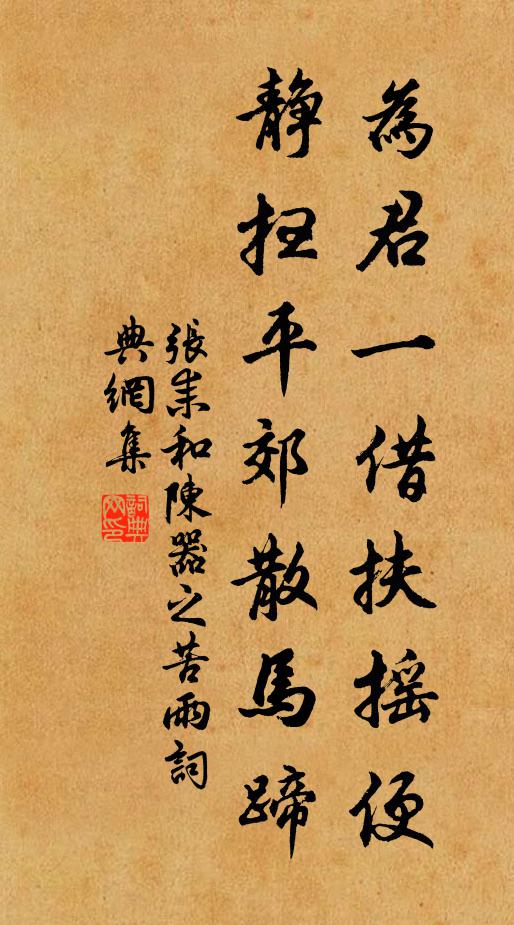 為君一借扶摇便
静扫平郊散馬蹄
張耒和陳器之苦雨詞
典網集
詞典
网印